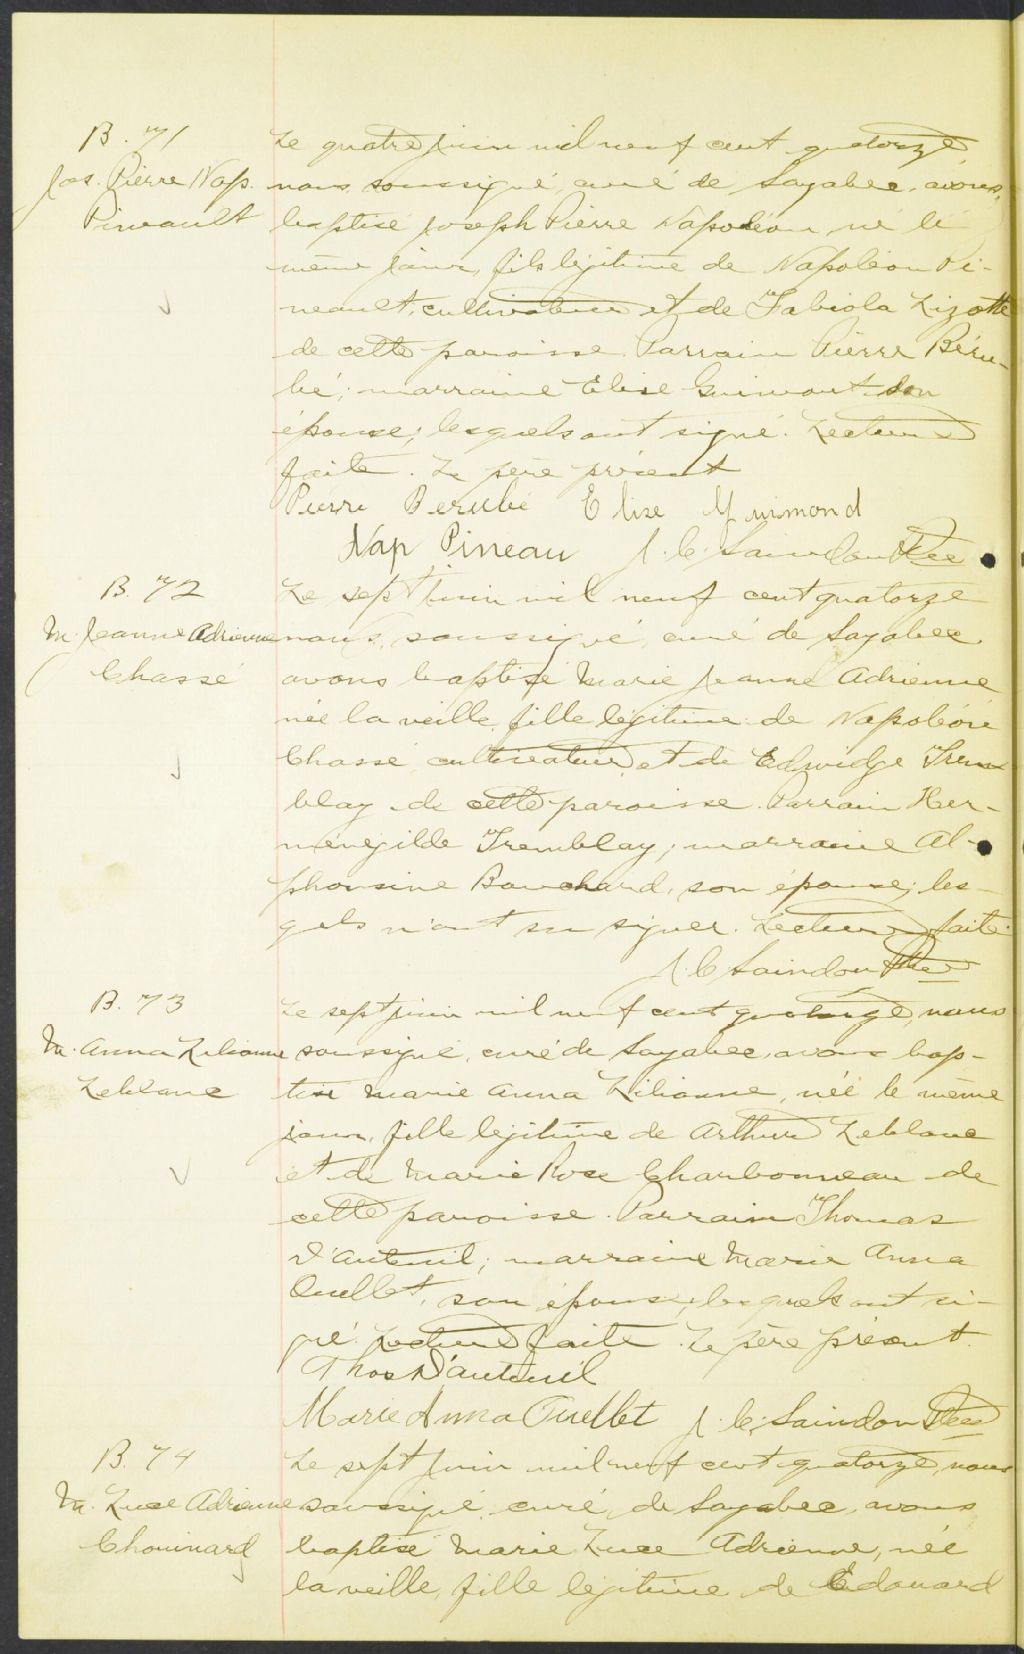 B. 71
Jos. Pierre Nap.
Pineault
Le quatre juin mil neuf cent quatorze
nous, soussigné, curé de Sayabec, avons,
baptisé Joseph Pierre Napoléon, né le
même jour, fils légitime de Napoléon Pi-
neault, cultivateur et de Fabiola Lizotte
de cette paroisse. Parrain Pierre Béru-
bé; marraine Elise Guimont son
épouse; lesquels ont signé. Lecture
faite. Le père présent
Pierre Berubé Elise Guimond
Nap Pineau J. C. Saindon Ptre
B. 72
M. Jeanne Adrienne
Chassé
Le sept juin mil neuf cent quatorze
nous, soussigné, curé de Sayabec
avons baptisé Marie Jeanne Adrienne
née la veille, fille légitime de Napoléon
Chassé, cultivateur, et de Edwidge Trem
blay de cette paroisse. Parrain Her-
ménégilde Tremblay; marraine Al-
phonsine Bouchard, son épouse; les-
quels n'ont su signer. Lecture faite.
J. C. Saindon Ptre
B. 73
M. Anna Lilianne
Leblanc
Le sept juin mil neuf cent quatorze, nous
soussigné, curé de Sayabec, avons bap-
tisé Marie Anna Lilianne, née le même
jour, fille légitime de Arthur Leblanc
et de Marie Rose Charbonneau de
cette paroisse. Parrain Thomas
D'Auteuil; marraine Marie Anna
Ouellet, son épouse, lesquels ont si-
gné. Lecture faite. Le père présent.
Thos D'auteuil
Marie Anna Ouellet J. C. Saindon Ptre
B. 74
M. Luce Adrienne
Chouinard
Le sept juin mil neuf cent quatorze, nous
soussigné, curé, de Sayabec, avons
baptisé Marie Luce Adrienne, née
la veille, fille légitime de Edouard